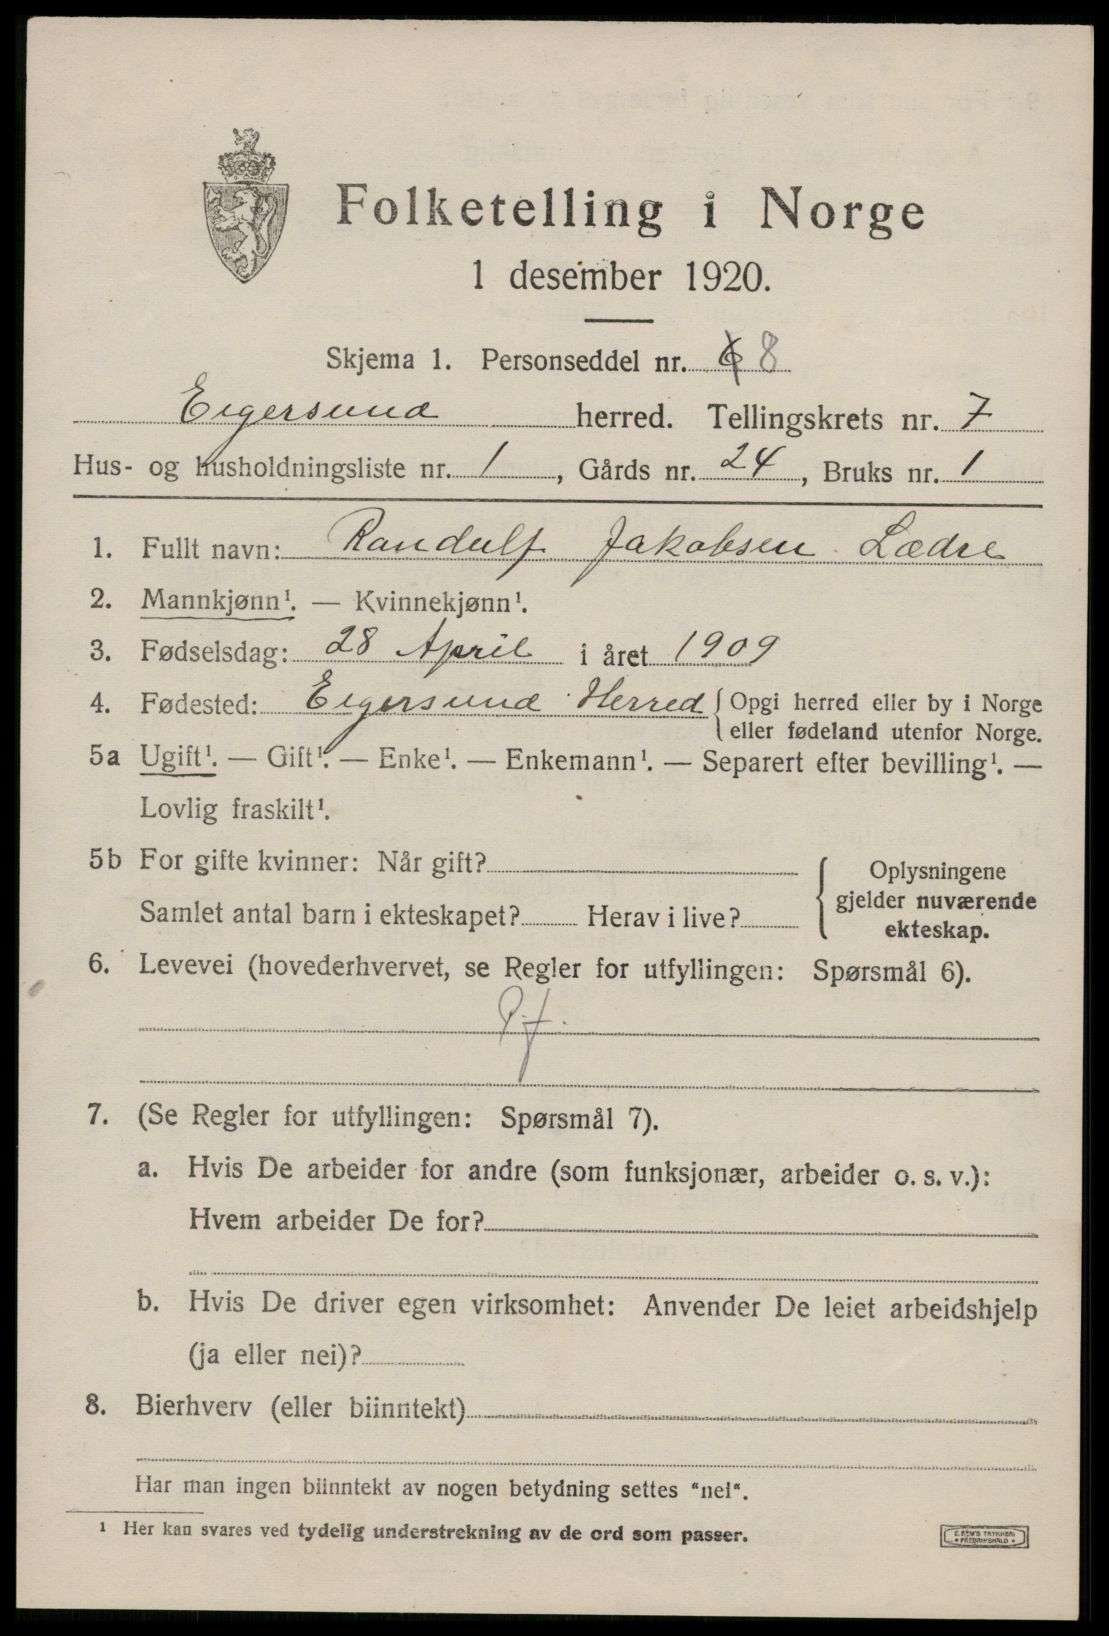 Folketelling i Norge
1 desember 1920.
Skjema 1. Personseddel nr. 6 8
Eigersund herred. Tellingskrets nr. 7
Hus- og husholdningsliste nr. 1, Gårds nr. 24, Bruks nr. 1
1. Fullt navn: Randulf Jakobsen Lædre
2. Mannkjønn¹. — Kvinnekjønn¹.
3. Fødselsdag: 28 April i året 1909
4. Fødested: Eigersund Herred { Opgi herred eller by i Norge
eller fødeland utenfor Norge.
5a Ugift¹. — Gift¹. — Enke¹. — Enkemann¹. — Separert efter bevilling¹. —
Lovlig fraskilt¹.
5b For gifte kvinner: Når gift?
Samlet antal barn i ekteskapet? Herav i live?
Oplysningene
gjelder nuværende
ekteskap.
6. Levevei (hovederhvervet, se Regler for utfyllingen: Spørsmål 6).
7. (Se Regler for utfyllingen: Spørsmål 7).
a. Hvis De arbeider for andre (som funksjonær, arbeider o. s. v.):
Hvem arbeider De for?
b. Hvis De driver egen virksomhet: Anvender De leiet arbeidshjelp
(ja eller nei)?
8. Bierhverv (eller biinntekt)
Har man ingen biinntekt av nogen betydning settes "nei".
¹ Her kan svares ved tydelig understrekning av de ord som passer.